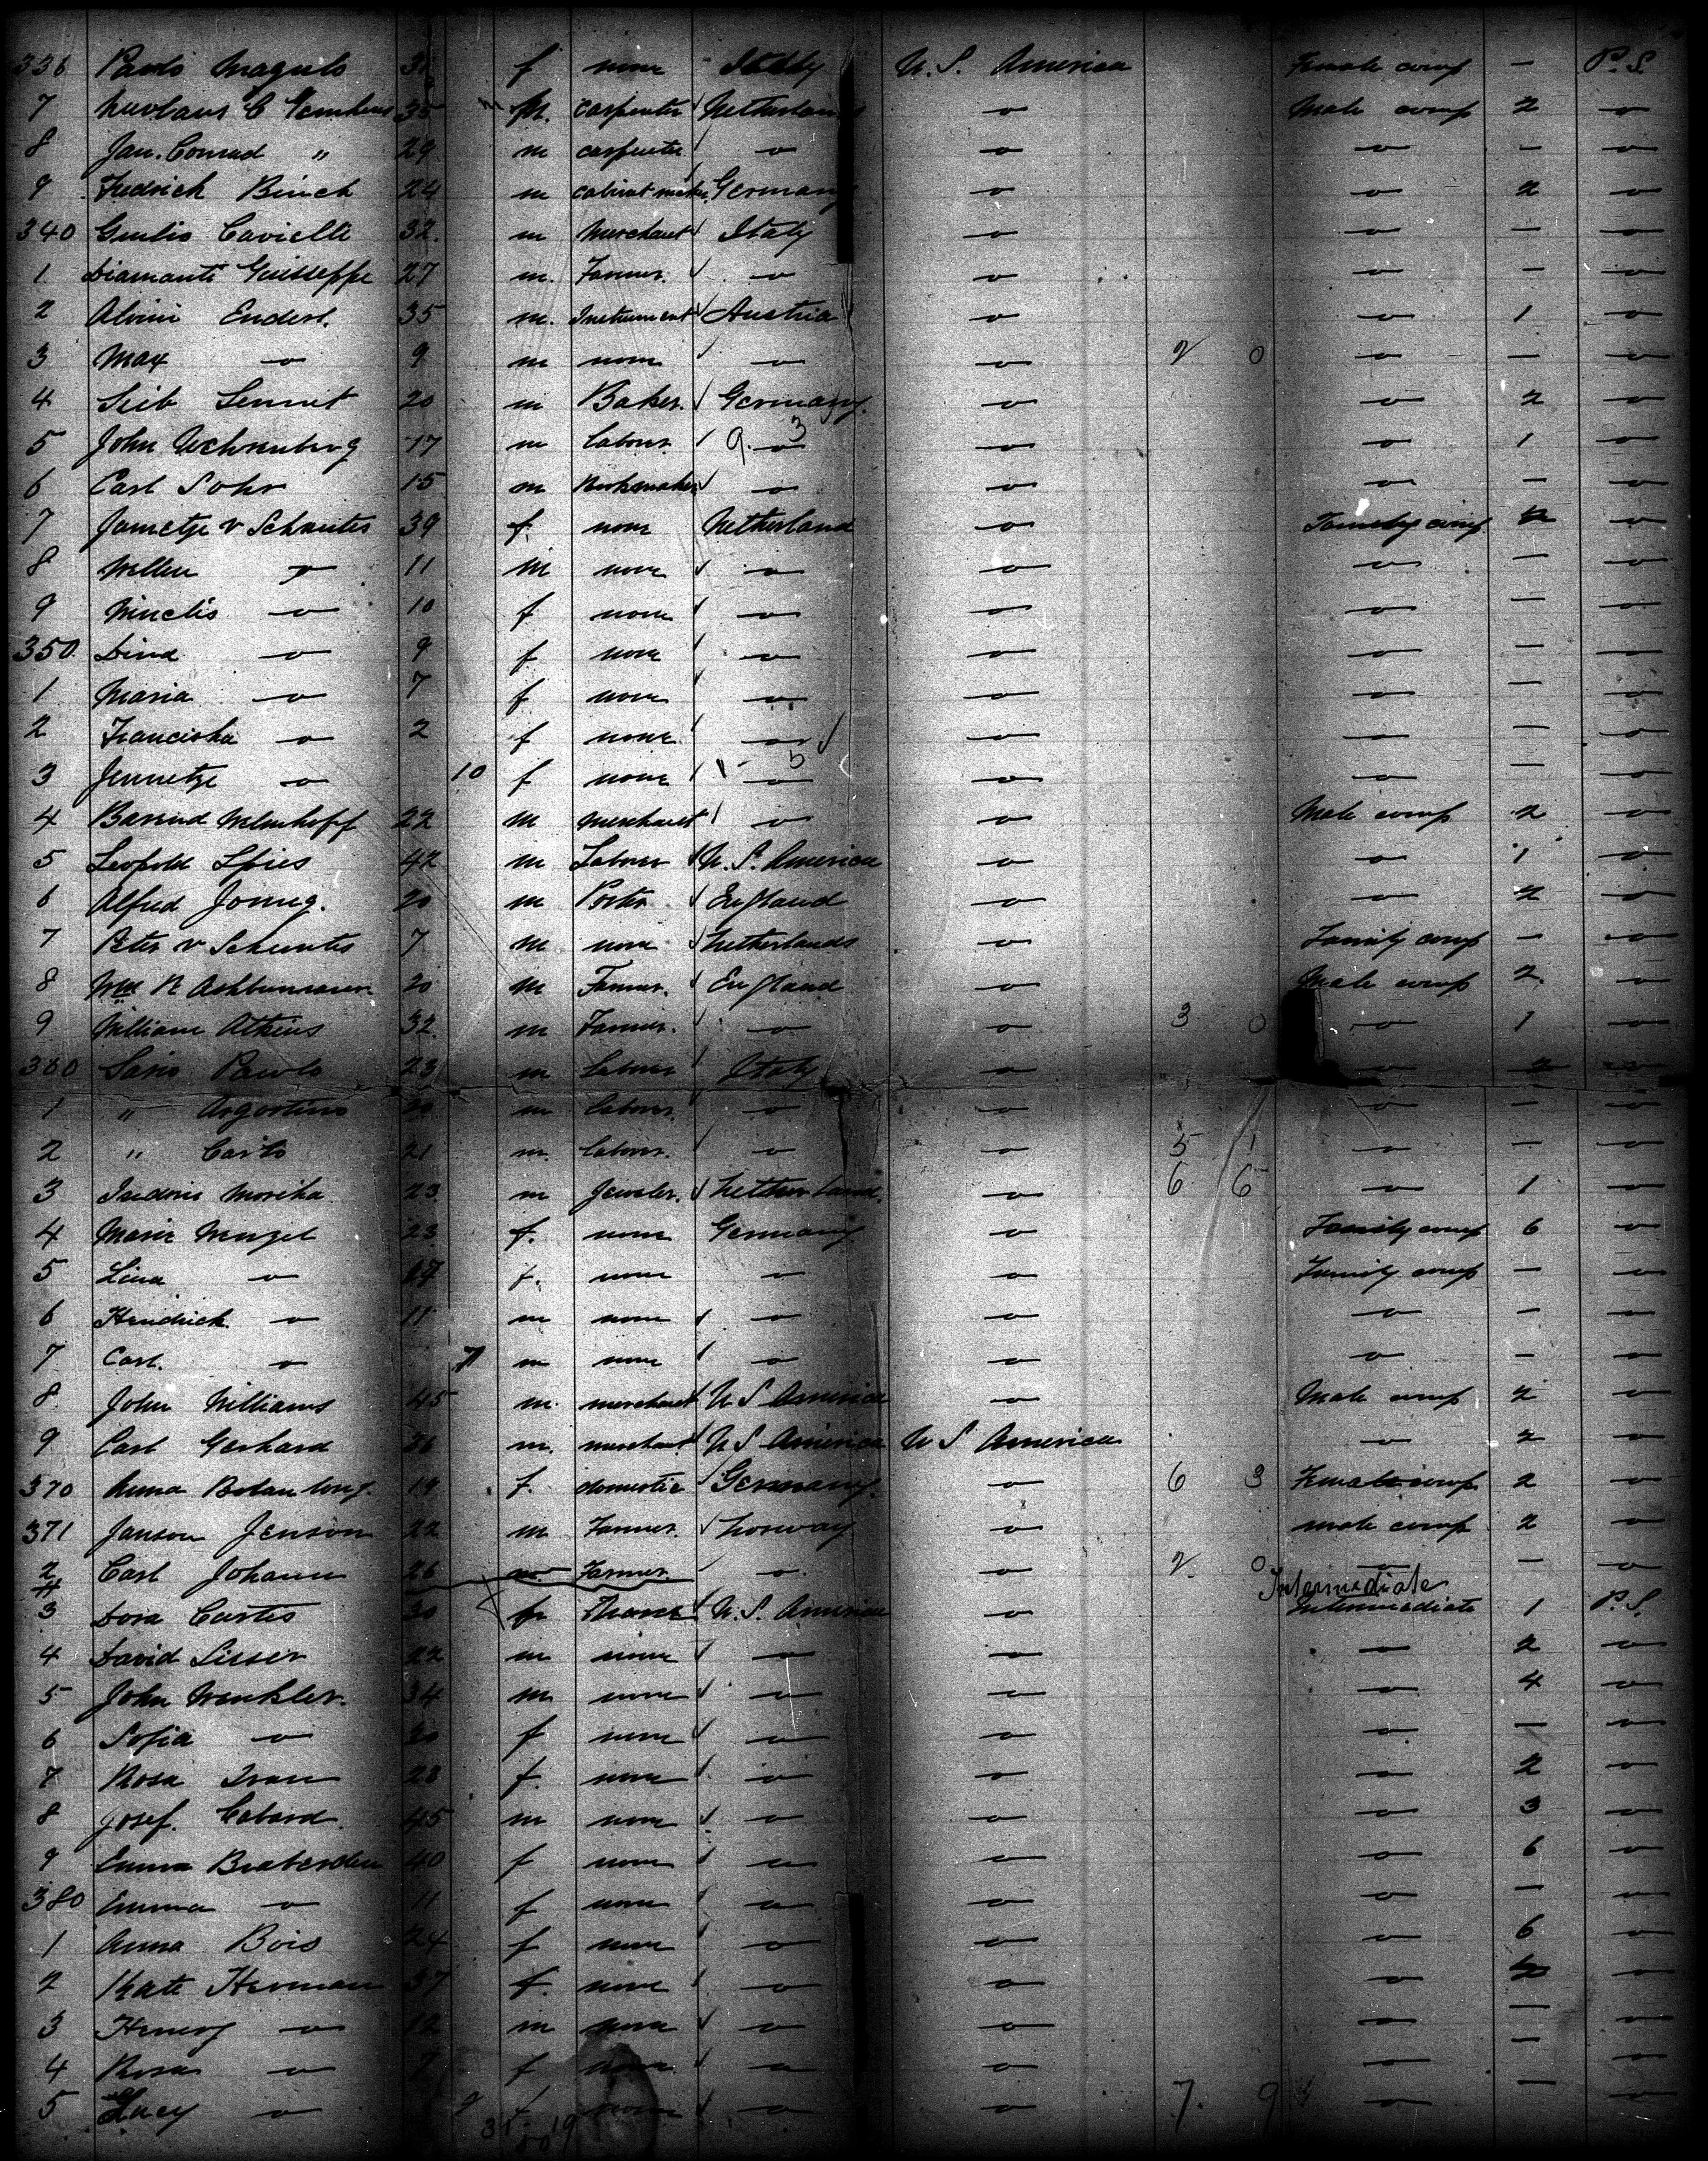 336 f none Italy U.S. America Female comp — P.S.
7 35 M. carpenter Netherlands —o— Male comp 2 —o—
8 Jan. Conrad " 29 m carpenter —o— —o— —o— — —o—
9 Fredrich Binck 24 m cabinet maker Germany —o— —o— 2 —o—
340 Guilio Cavielli 32. m Merchant Italy —o— —o— — —o—
1. Diamanti Guisseppe 27 m. Farmer. —o— —o— —o— — —o—
2 Endert. 35 m. Instrument Austria —o— —o— 1 —o—
3 Max —o— 9 m none —o— —o— 2 0 —o— — —o—
4 20 m Baker. Germany. —o— —o— 2 —o—
5 John 17 m labour. 9. 3 —o— —o— —o— 1 —o—
6 Carl Sohr 15 m —o— —o— —o— — —o—
7 Jametje v Schuites 39 f. none Netherland —o— Family comp —o—
8 Willem —o— 11 m none —o— —o— —o— — —o—
9 —o— 10 f none —o— —o— —o— — —o—
350. Dina —o— 9 f none —o— —o— —o— — —o—
1 Maria —o— 7 f none —o— —o— —o— — —o—
2 Franciska —o— 2 f none —o— —o— —o— — —o—
3 Jennetje —o— 10 f none 5 —o— —o— —o— — —o—
4 22 m merchant —o— —o— Male comp 2 —o—
5 Leopold Spies 42 m Labour U.S. America —o— —o— 1 —o—
6 Alfred 20 m Porter England —o— —o— 2 —o—
7 Peter v 7 m none Netherlands —o— Family comp — —o—
8 Wm R 20 m Farmer. England —o— Male comp 2. —o—
9 William Atkins 32 m Farmer. —o— —o— 3 0 —o— 1 —o—
360 Paulo 23 m labour Italy —o— —o— 2 —o—
1 " Argostino 20 m labour. —o— —o— —o— — —o—
2 " Carlo 21 m. labour. —o— —o— 5 1 —o— — —o—
3 23 m Jeweler. Netherland. —o— 6 6 —o— 1 —o—
4 Marie 23 f. none Germany —o— Family comp 6 —o—
5 Lina —o— 17 f. none —o— —o— Family comp — —o—
6 Hendrick —o— 11 m none —o— —o— —o— — —o—
7 Carl. —o— 7 m none —o— —o— —o— — —o—
8. John Williams 45 m. merchant U S America —o— Male comp 2 —o—
9 Carl Gerhard 36 m. merchant U S America U S America —o— 2 —o—
370 Anna 19 f. domestic Germany. —o— 6 3 Female comp 2 —o—
371 Janson Jenson 22 m Farmer. Norway —o— male comp 2 —o—
2 Carl Johann 26 m. Farmer. —o— —o— 2 0 —o— — —o—
Intermediate
3 Dora Curtis 30 U.S. America —o— Intermediate 1 P.S.
4 David Lisser 22 m none —o— —o— —o— 2 —o—
5 John Winkler. 34 m. none —o— —o— —o— 4 —o—
6 Sofia —o— 20 f none —o— —o— —o— — —o—
7 Rosa 28 f. none —o— —o— —o— 2 —o—
8 Josef. Cabard. 45 m none —o— —o— —o— 3 —o—
9 Emma 40 f none —o— —o— —o— 6 —o—
380 Emma —o— 11 f none —o— —o— —o— — —o—
1 Anna Bois 24 f none —o— —o— —o— 6 —o—
2 Kate Herman 37 f. none —o— —o— —o— —o—
3 Henry —o— 12 m none —o— —o— —o— — —o—
4 Rosa —o— 7 f none —o— —o— —o— — —o—
5 Lucy —o— 9 f none —o— —o— 7. 9 —o— — —o—